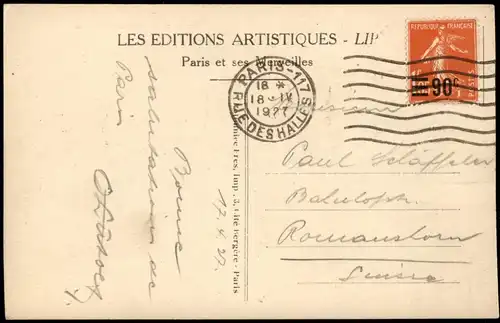 LES EDITIONS ARTISTIQUES - LIP
Paris et ses Merveilles
REPUBLIQUE FRANÇAISE
90c
PARIS-117
18 *
18-IV
1927
R. DES HALLES
Frères, Imp., 3, Cité Bergère - Paris
Bonne
salutations de
Paris
17.4.27.
Monsieur
Paul Schäffeler
Bahnhofstr.
Romanshorn
Suisse